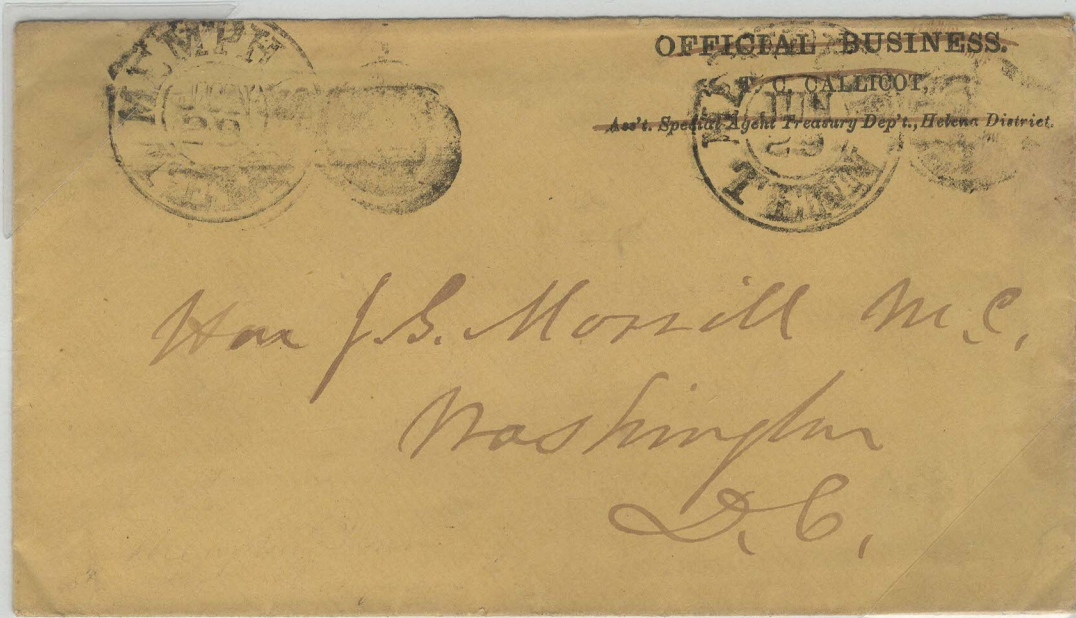 OFFICIAL BUSINESS.
T. C. CALLICOT,
Ass't. Special Agent Treasury Dep't., Helena District.
MEMPH
TEN
JUN
29
TENN
Hon J. S. Morrill M.C.,
Washington
D.C.,